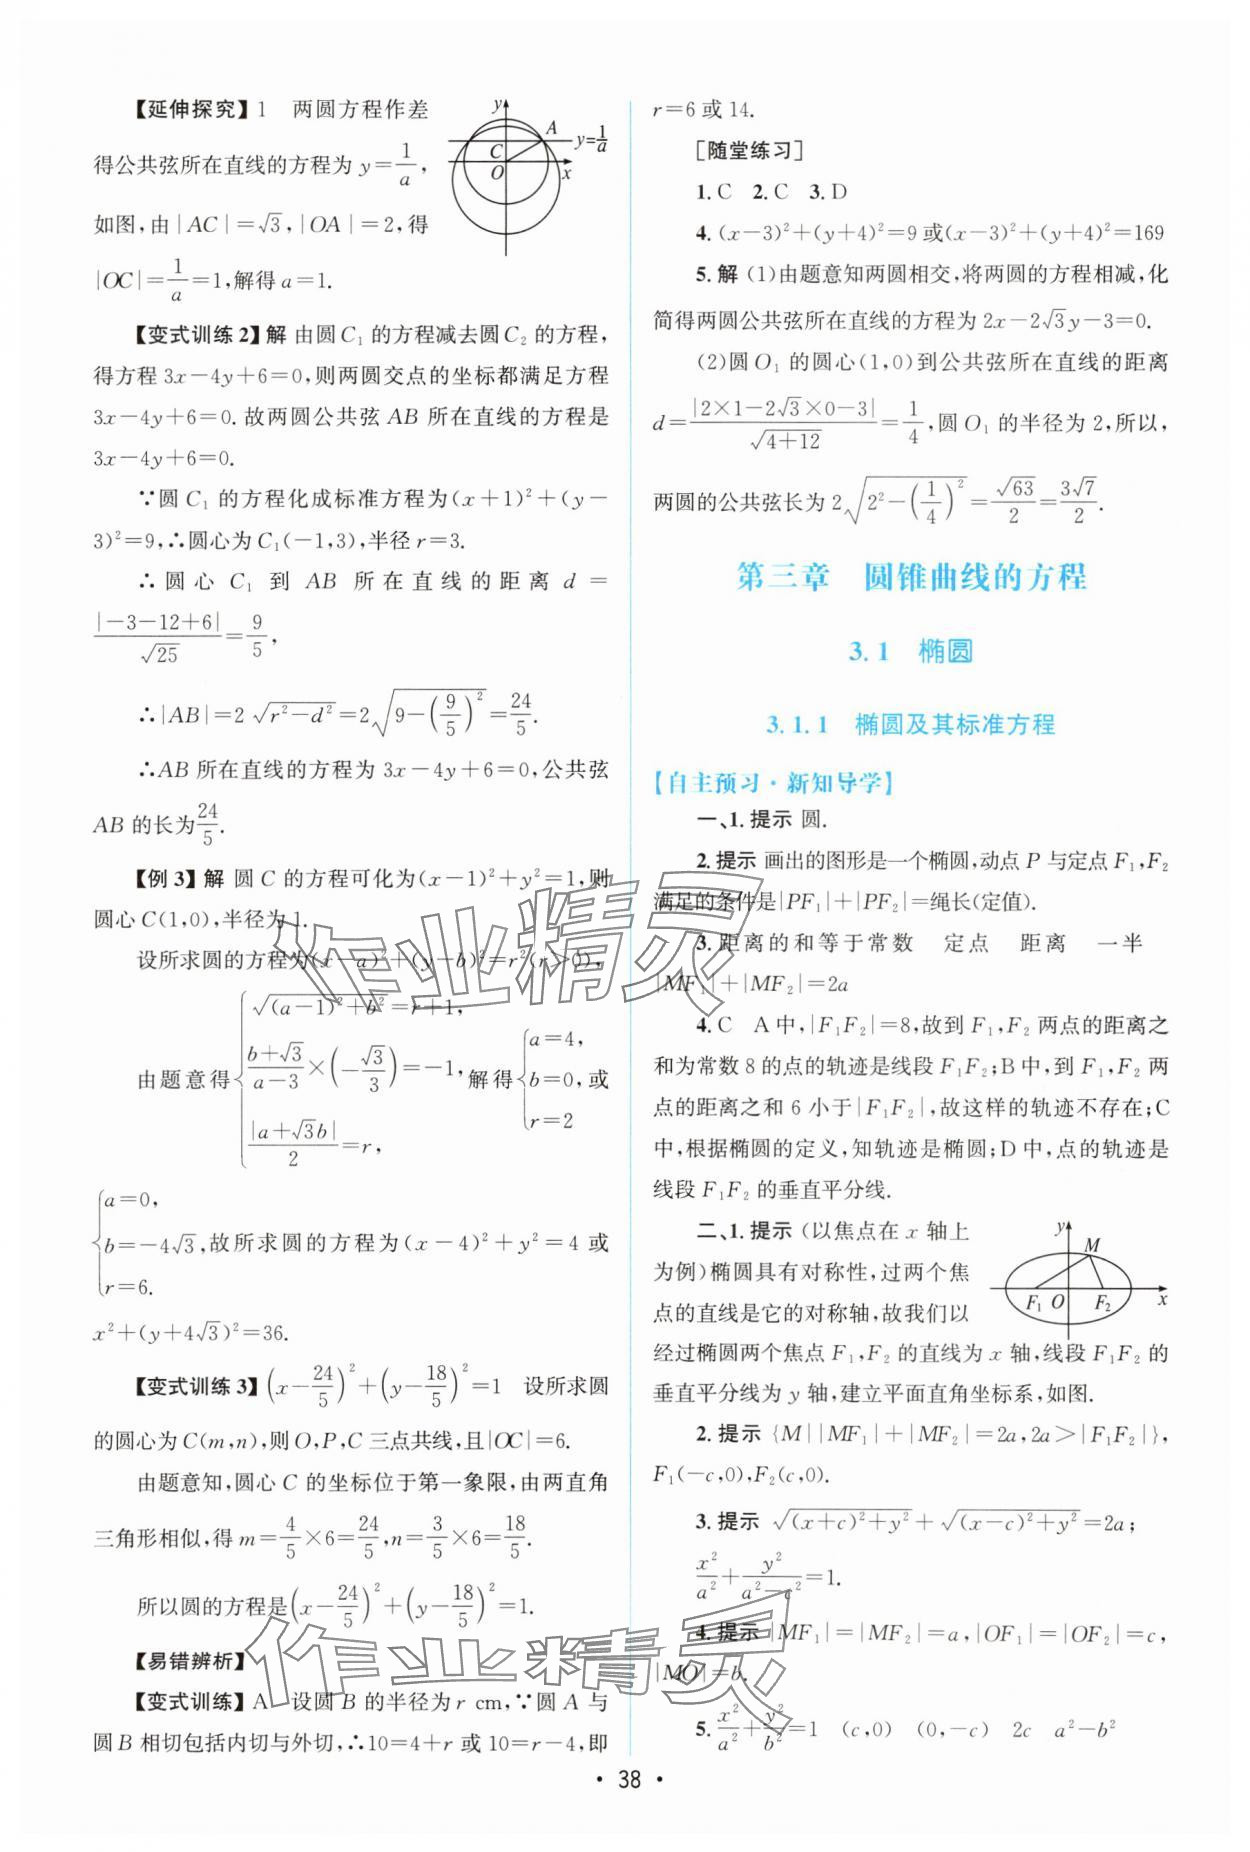 【延伸探究】1 两圆方程作差
得公共弦所在直线的方程为 y=1/a,
如图,由|AC|=√3,|OA|=2,得
|OC|=1/a=1,解得 a=1.
y
A
y=1/a
C
O
x
【变式训练2】解 由圆 C₁ 的方程减去圆 C₂ 的方程,
得方程 3x-4y+6=0,则两圆交点的坐标都满足方程
3x-4y+6=0.故两圆公共弦 AB 所在直线的方程是
3x-4y+6=0.
∵圆 C₁ 的方程化成标准方程为(x+1)²+(y-
3)²=9,∴圆心为 C₁(-1,3),半径 r=3.
∴圆心 C₁ 到 AB 所在直线的距离 d=
|-3-12+6|/√25=9/5,
∴|AB|=2√(r²-d²)=2√(9-(9/5)²)=24/5.
∴AB 所在直线的方程为 3x-4y+6=0,公共弦
AB 的长为24/5.
【例3】解 圆 C 的方程可化为(x-1)²+y²=1,则
圆心 C(1,0),半径为 1.
设所求圆的方程为(x-a)²+(y-b)²=r²(r>0),
由题意得{√((a-1)²+b²)=r+1, (b+√3)/(a-3)×(-√3/3)=-1, |a+√3b|/2=r, 解得{a=4, b=0, r=2 或
{a=0, b=-4√3, r=6. 故所求圆的方程为(x-4)²+y²=4 或
x²+(y+4√3)²=36.
【变式训练3】(x-24/5)²+(y-18/5)²=1 设所求圆
的圆心为 C(m,n),则 O,P,C 三点共线,且|OC|=6.
由题意知,圆心 C 的坐标位于第一象限,由两直角
三角形相似,得 m=4/5×6=24/5,n=3/5×6=18/5.
所以圆的方程是(x-24/5)²+(y-18/5)²=1.
【易错辨析】
【变式训练】A 设圆 B 的半径为 r cm,∵圆 A 与
圆 B 相切包括内切与外切,∴10=4+r 或 10=r-4,即
r=6 或 14.
[随堂练习]
1.C 2.C 3.D
4.(x-3)²+(y+4)²=9 或(x-3)²+(y+4)²=169
5.解 (1)由题意知两圆相交,将两圆的方程相减,化
简得两圆公共弦所在直线的方程为 2x-2√3y-3=0.
(2)圆 O₁ 的圆心(1,0)到公共弦所在直线的距离
d=|2×1-2√3×0-3|/√(4+12)=1/4,圆 O₁ 的半径为 2,所以,
两圆的公共弦长为 2√(2²-(1/4)²)=√63/2=3√7/2.
第三章 圆锥曲线的方程
3.1 椭圆
3.1.1 椭圆及其标准方程
【自主预习·新知导学】
一、1.提示 圆.
2.提示 画出的图形是一个椭圆,动点 P 与定点 F₁,F₂
满足的条件是|PF₁|+|PF₂|=绳长(定值).
3.距离的和等于常数 定点 距离 一半
|MF₁|+|MF₂|=2a
4.C A 中,|F₁F₂|=8,故到 F₁,F₂ 两点的距离之
和为常数 8 的点的轨迹是线段 F₁F₂;B 中,到 F₁,F₂ 两
点的距离之和 6 小于|F₁F₂|,故这样的轨迹不存在;C
中,根据椭圆的定义,知轨迹是椭圆;D 中,点的轨迹是
线段 F₁F₂ 的垂直平分线.
二、1.提示 (以焦点在 x 轴上
为例)椭圆具有对称性,过两个焦
点的直线是它的对称轴,故我们以
经过椭圆两个焦点 F₁,F₂ 的直线为 x 轴,线段 F₁F₂ 的
垂直平分线为 y 轴,建立平面直角坐标系,如图.
y
M
F₁ O F₂ x
2.提示 {M||MF₁|+|MF₂|=2a,2a>|F₁F₂|},
F₁(-c,0),F₂(c,0).
3.提示 √((x+c)²+y²)+√((x-c)²+y²)=2a;
x²/a²+y²/(a²-c²)=1.
4.提示 |MF₁|=|MF₂|=a,|OF₁|=|OF₂|=c,
|MO|=b.
5.x²/a²+y²/b²=1 (c,0) (0,-c) 2c a²-b²
· 38 ·
作业精灵
作业精灵